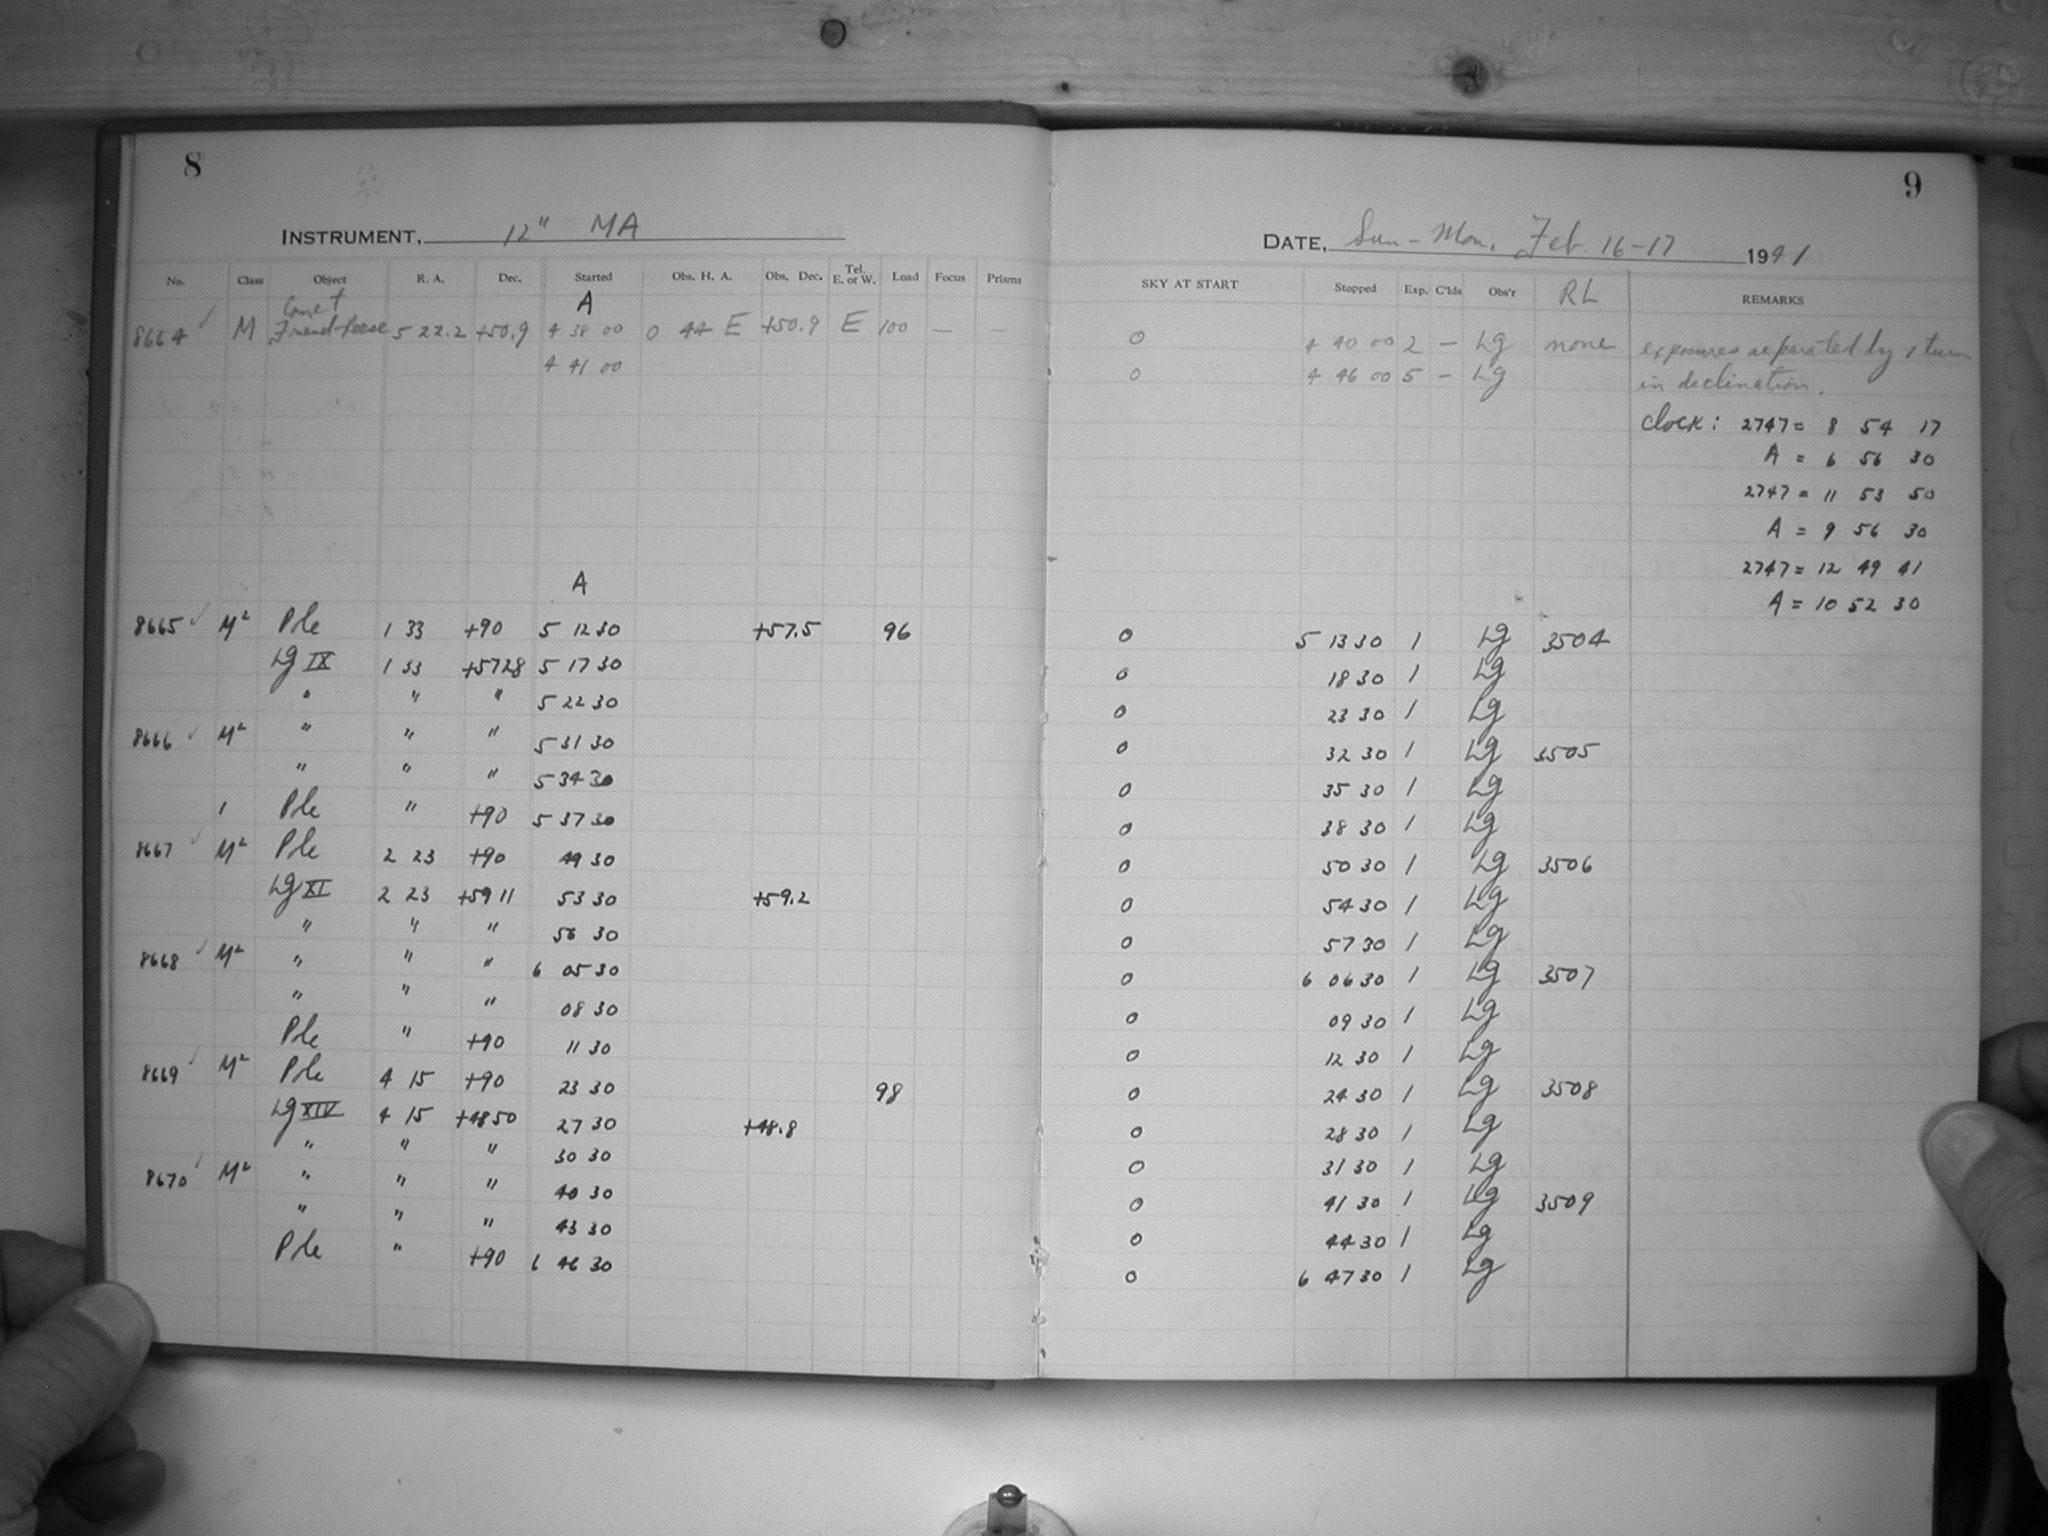 8
INSTRUMENT, 12" MA
No. Class Object R. A. Dec. Started Obs. H. A. Obs. Dec. Tel. E. or W. Load Focus Prisms
Comet A
8664 M Friend-Reese 5 22.2 +50.9 4 38 00 0 44 E +50.9 E 100 — —
4 41 00
A
8665 M² Pole 1 33 +90 5 12 30 +57.5 96
Lg IX 1 33 +57 28 5 17 30
" " " 5 22 30
8666 M² " " " 5 31 30
" " " 5 34 30
1 Pole " +90 5 37 30
8667 M² Pole 2 23 +90 49 30
Lg XI 2 23 +59 11 53 30 +59.2
" " " 56 30
8668 M² " " " 6 05 30
" " " 08 30
Pole " +90 11 30
8669 M² Pole 4 15 +90 23 30 98
Lg XIV 4 15 +48 50 27 30 +48.8
" " " 30 30
8670 M² " " " 40 30
" " " 43 30
Pole " +90 6 46 30
9
DATE, Sun - Mon, Feb. 16-17 1941
SKY AT START Stopped Exp. C'lds Obs'r RL REMARKS
0 4 40 00 2 — Lg none exposures separated by 1 turn
0 4 46 00 5 — Lg in declination.
clock: 2747 = 8 54 17
A = 6 56 30
2747 = 11 53 50
A = 9 56 30
2747 = 12 49 41
A = 10 52 30
0 5 13 30 1 Lg 3504
0 18 30 1 Lg
0 23 30 1 Lg
0 32 30 1 Lg 3505
0 35 30 1 Lg
0 38 30 1 Lg
0 50 30 1 Lg 3506
0 54 30 1 Lg
0 57 30 1 Lg
0 6 06 30 1 Lg 3507
0 09 30 1 Lg
0 12 30 1 Lg
0 24 30 1 Lg 3508
0 28 30 1 Lg
0 31 30 1 Lg
0 41 30 1 Lg 3509
0 44 30 1 Lg
0 6 47 30 1 Lg